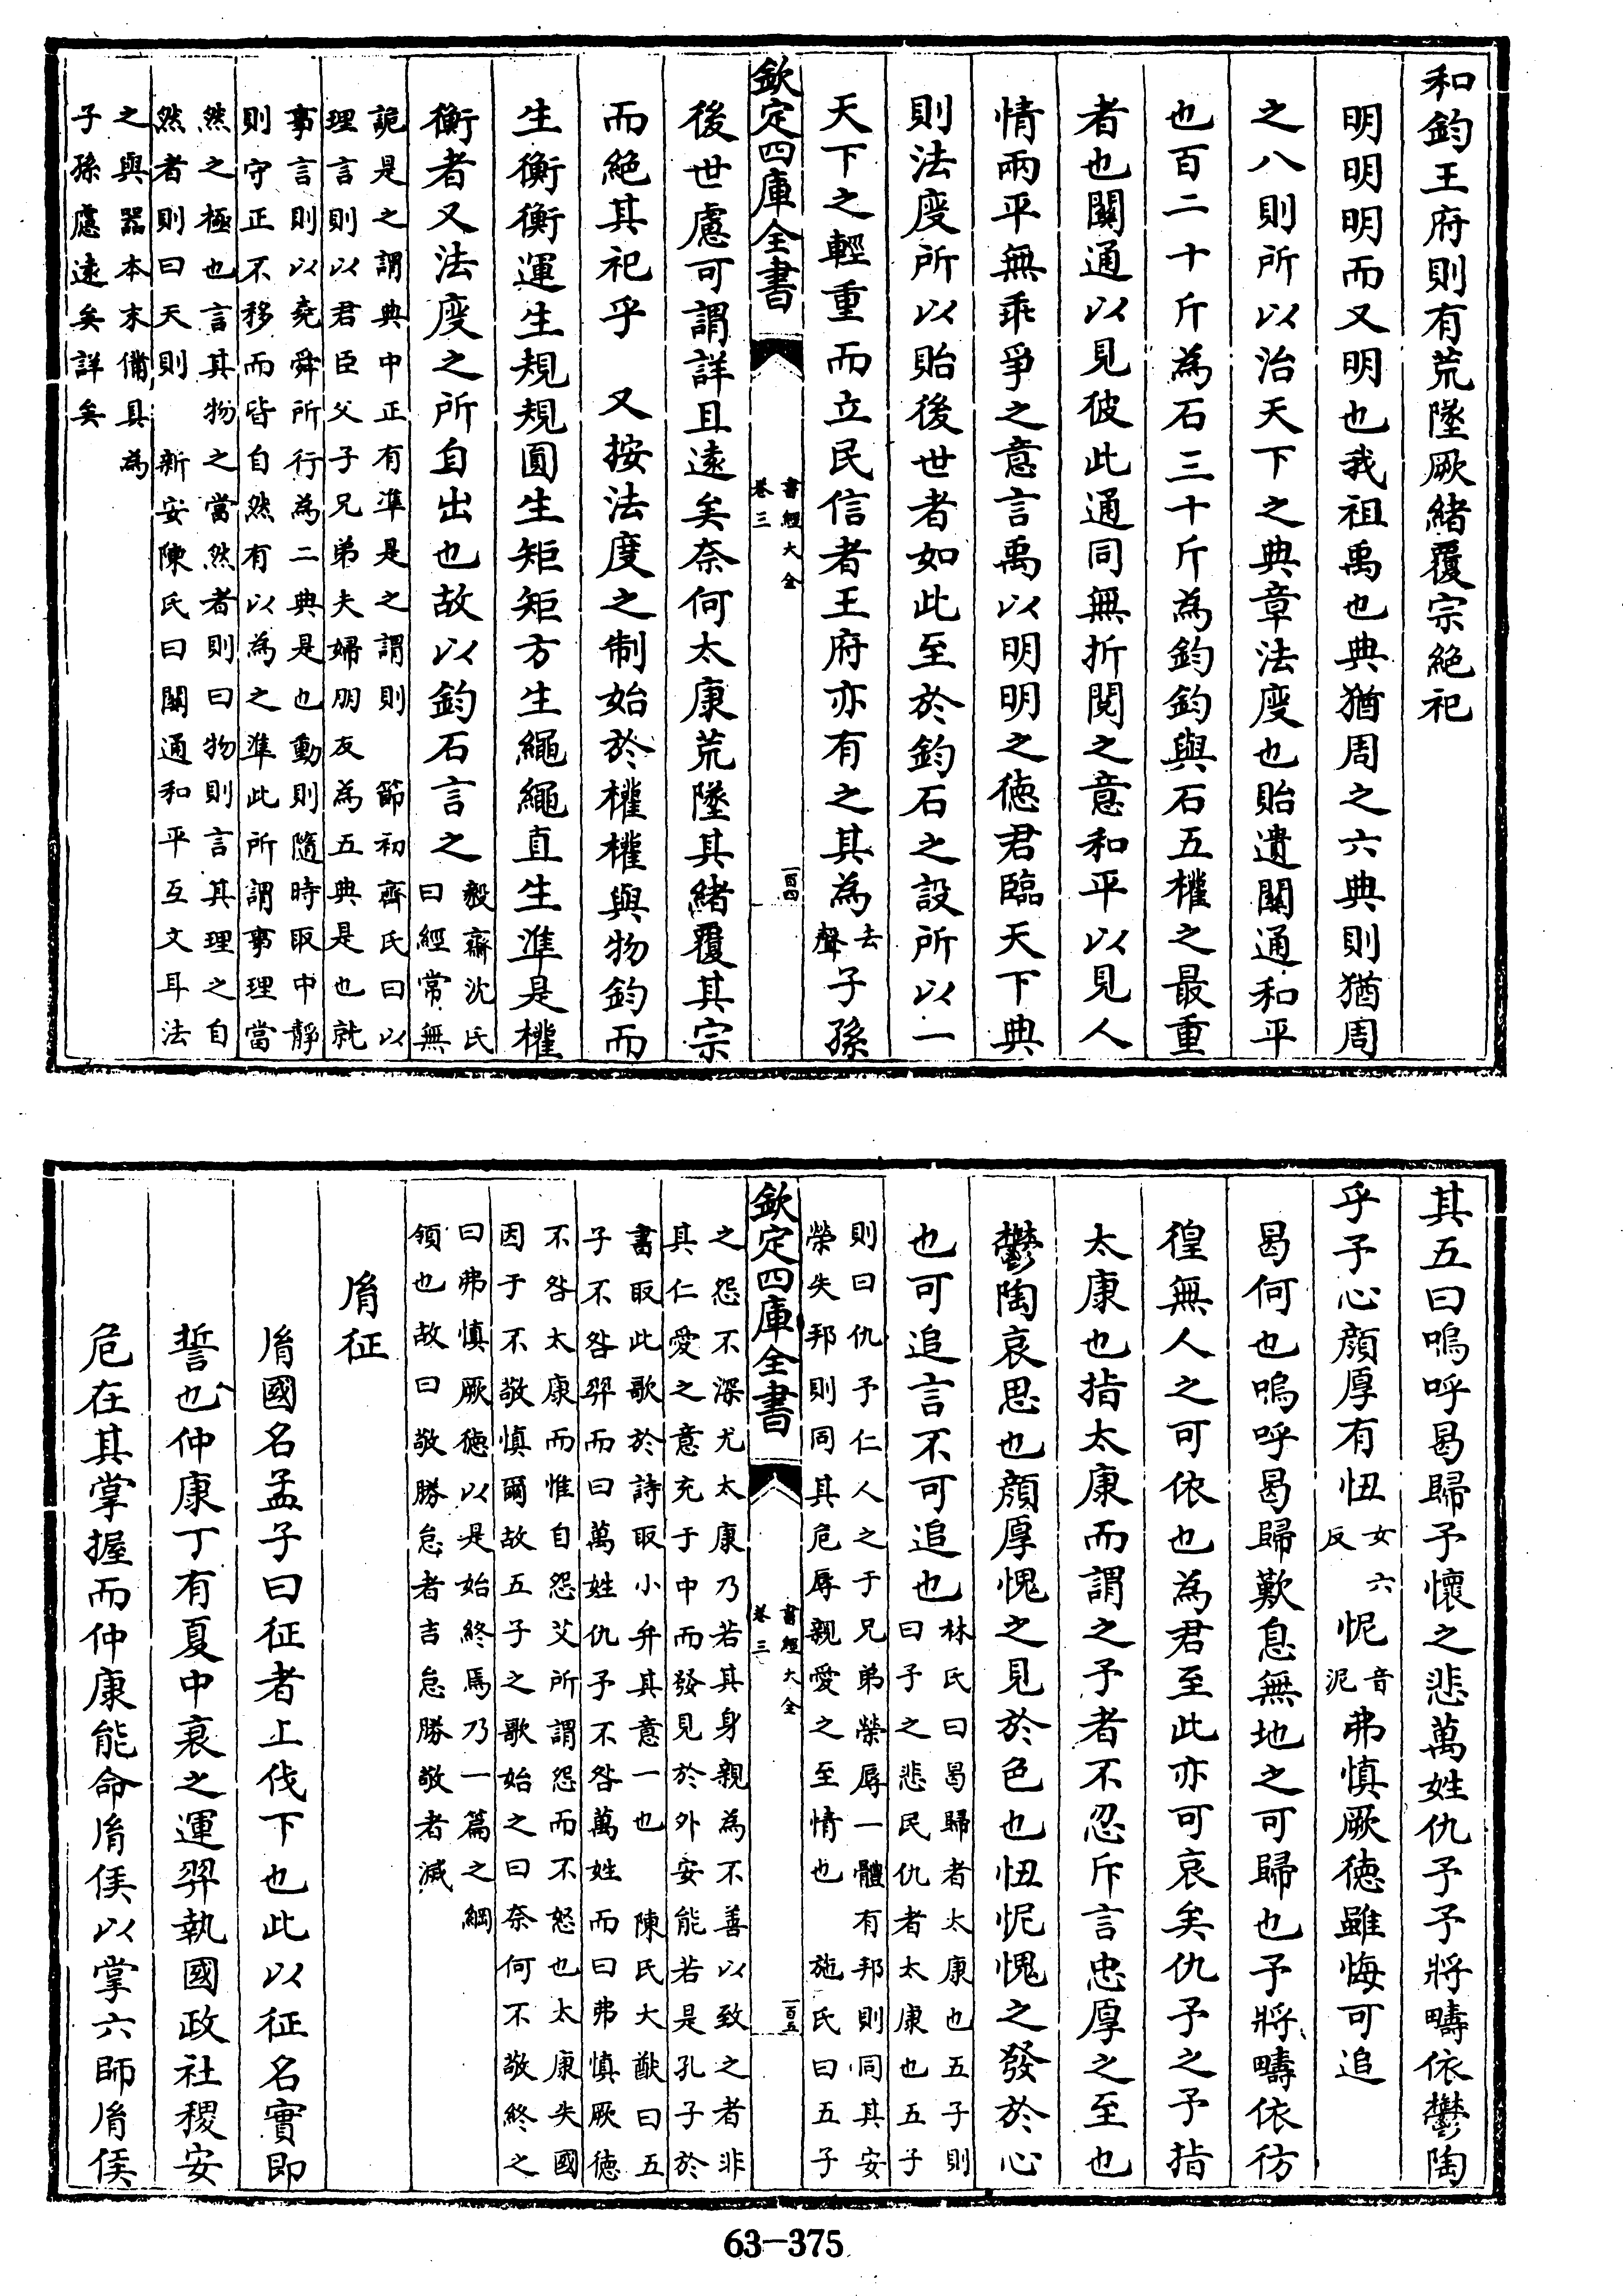 和鈞王府則有荒墜厥緒覆宗絶祀
明明明而又明也我祖禹也典猶周之六典則猶周
之八則所以治天下之典章法度也貽遺關通和平
也百二十斤為石三十斤為鈞鈞與石五權之最重
者也關通以見彼此通同無折閱之意和平以見人
情兩平無乖爭之意言禹以明明之徳君臨天下典
則法度所以貽後世者如此至於鈞石之設所以一
天下之輕重而立民信者王府亦有之其為去聲子孫
欽定四庫全書
書經大全
卷三
一百四
後世慮可謂詳且逺矣奈何太康荒墜其緒覆其宗
而絶其祀乎 又按法度之制始於權權與物鈞而
生衡衡運生規規圓生矩矩方生繩繩直生準是權
衡者又法度之所自出也故以鈞石言之
毅齋沈氏
曰經常無
詭是之謂典中正有準是之謂則 節初齊氏曰以
理言則以君臣父子兄弟夫婦朋友為五典是也就
事言則以堯舜所行為二典是也動則隨時取中靜
則守正不移而皆自然有以為之準此所謂事理當
然之極也言其物之當然者則曰物則言其理之自
然者則曰天則 新安陳氏曰關通和平互文耳法
之與器本末備具為
子孫慮逺矣詳矣
其五曰嗚呼曷歸予懷之悲萬姓仇予予將疇依鬱陶
乎予心顔厚有忸女六反怩音泥弗慎厥徳雖悔可追
曷何也嗚呼曷歸歎息無地之可歸也予將疇依彷
徨無人之可依也為君至此亦可哀矣仇予之予指
太康也指太康而謂之予者不忍斥言忠厚之至也
鬱陶哀思也顔厚愧之見於色也忸怩愧之發於心
也可追言不可追也
林氏曰曷歸者太康也五子則
曰予之悲民仇者太康也五子
則曰仇予仁人之于兄弟榮辱一體有邦則同其安
榮失邦則同其危辱親愛之至情也 施氏曰五子
欽定四庫全書
書經大全
卷三
一百五
之怨不深尤太康乃若其身親為不善以致之者非
其仁愛之意充于中而發見於外安能若是孔子於
書取此歌於詩取小弁其意一也 陳氏大猷曰五
子不咎羿而曰萬姓仇予不咎萬姓而曰弗慎厥徳
不咎太康而惟自怨艾所謂怨而不怒也太康失國
因于不敬慎爾故五子之歌始之曰奈何不敬終之
曰弗慎厥徳以是始終焉乃一篇之綱
領也故曰敬勝怠者吉怠勝敬者滅
胤征
胤國名孟子曰征者上伐下也此以征名實即
誓也仲康丁有夏中衰之運羿執國政社稷安
危在其掌握而仲康能命胤侯以掌六師胤侯
63-375